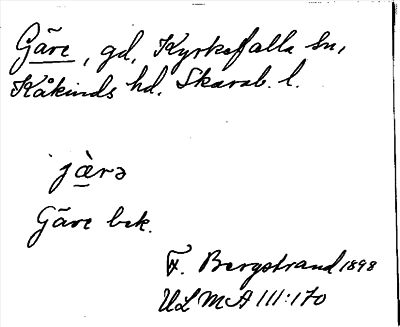 Gäre, gd, Kyrkefalla sn,
Kåkinds hd. Skarab. l.
jæ̀rə
Gäre bek.
F. Bergstrand 1898
ULMA 111:170